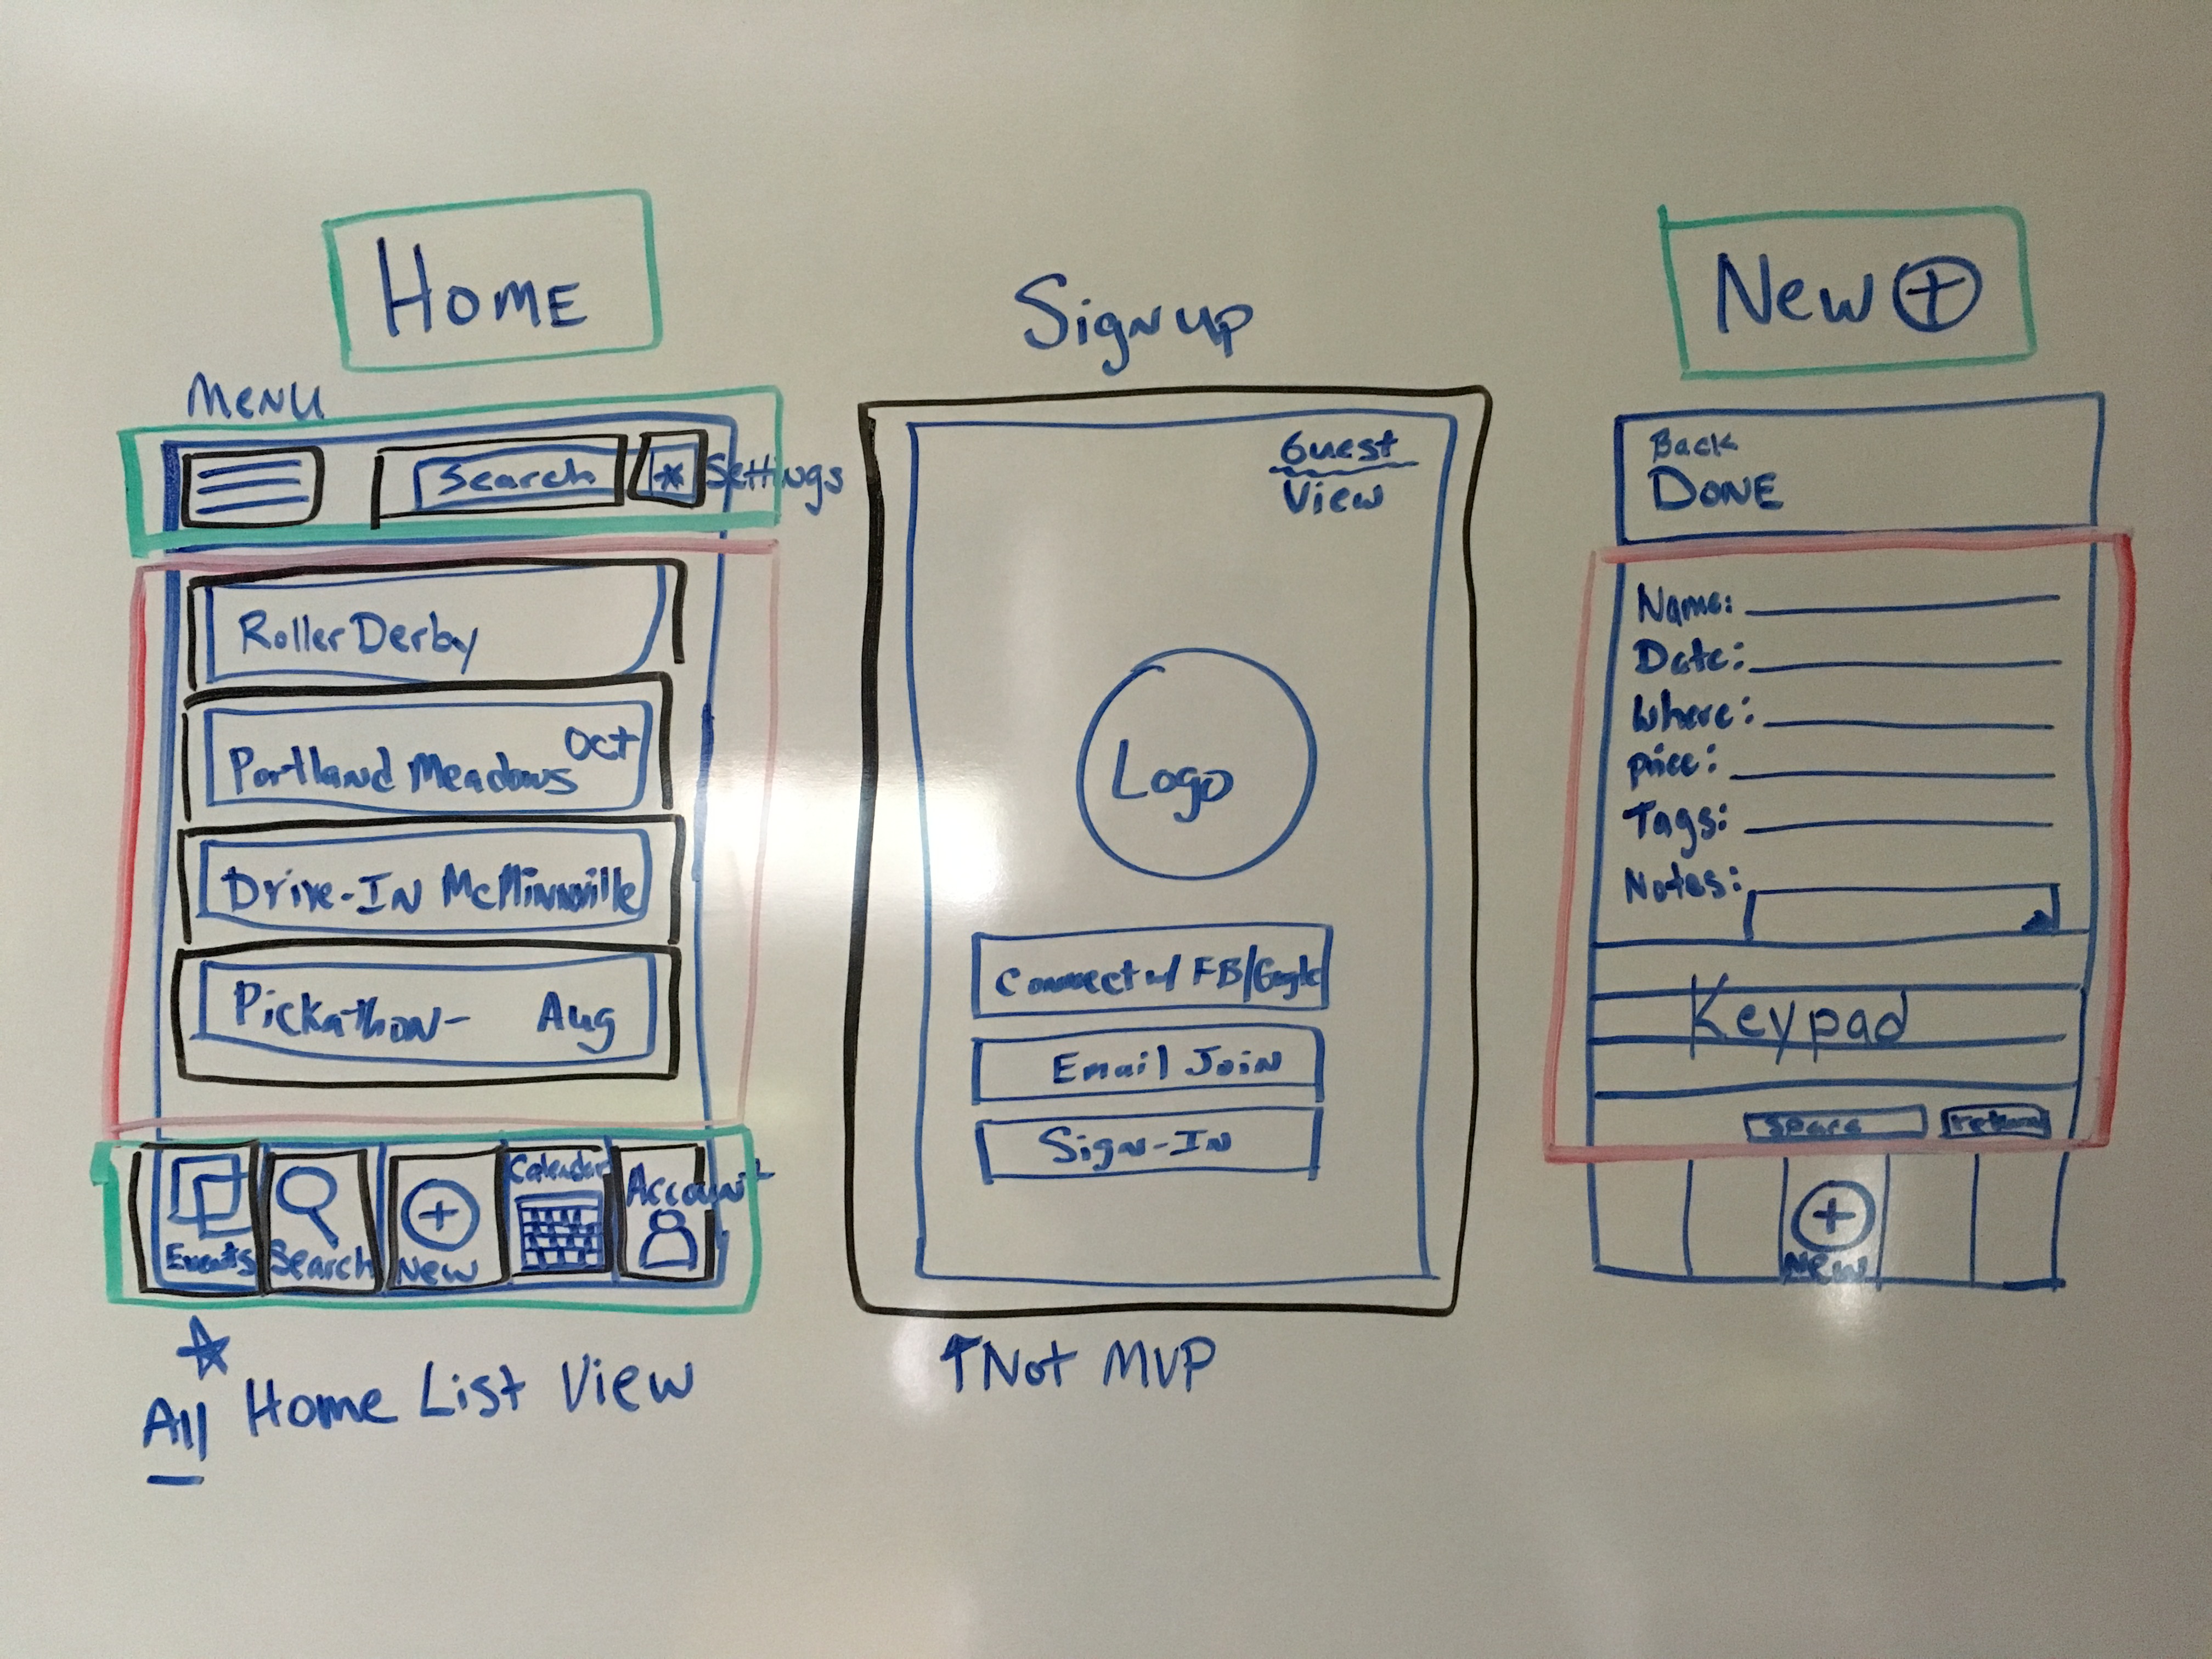 Home
Menu
Search
* Settings
Roller Derby
Portland Meadows Oct
Drive-In McMinnville
Pickathon- Aug
Events
Search
+
New
Calendar
Account
All Home List View
Sign up
Guest
View
Logo
Connect w/ FB/Google
Email Join
Sign-In
↑Not MVP
New +
Back
Done
Name:
Date:
Where:
price:
Tags:
Notes:
Keypad
return
+
New